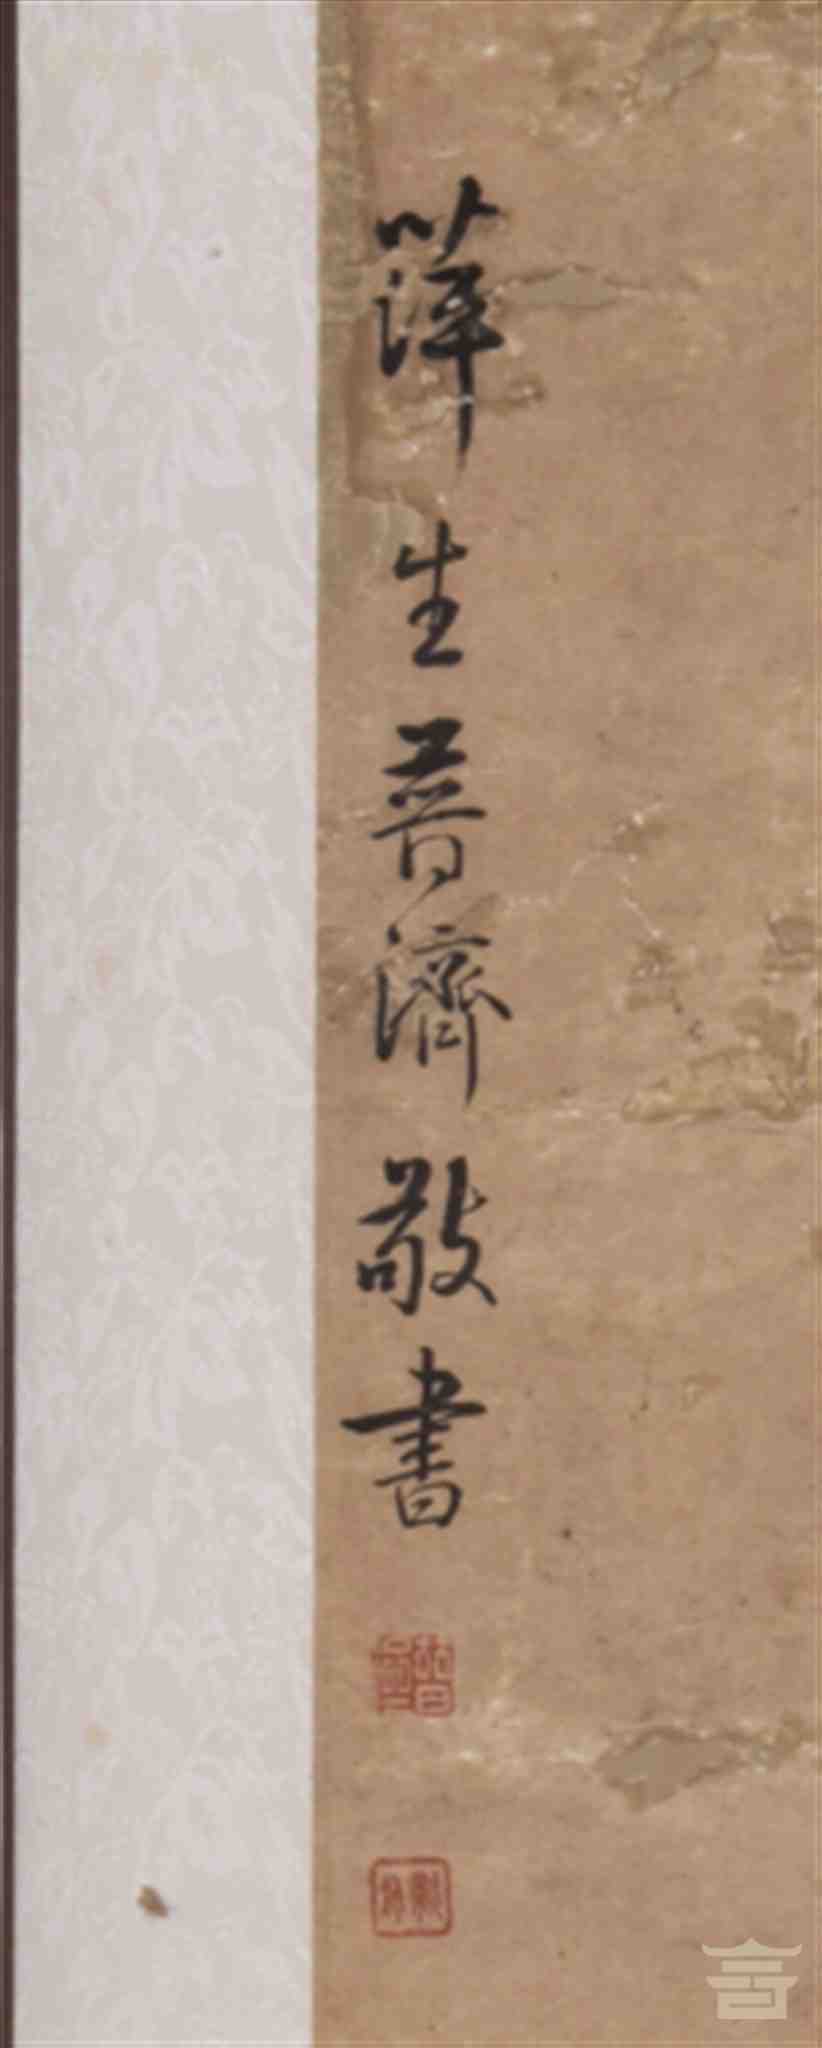 萍生普濟敬書